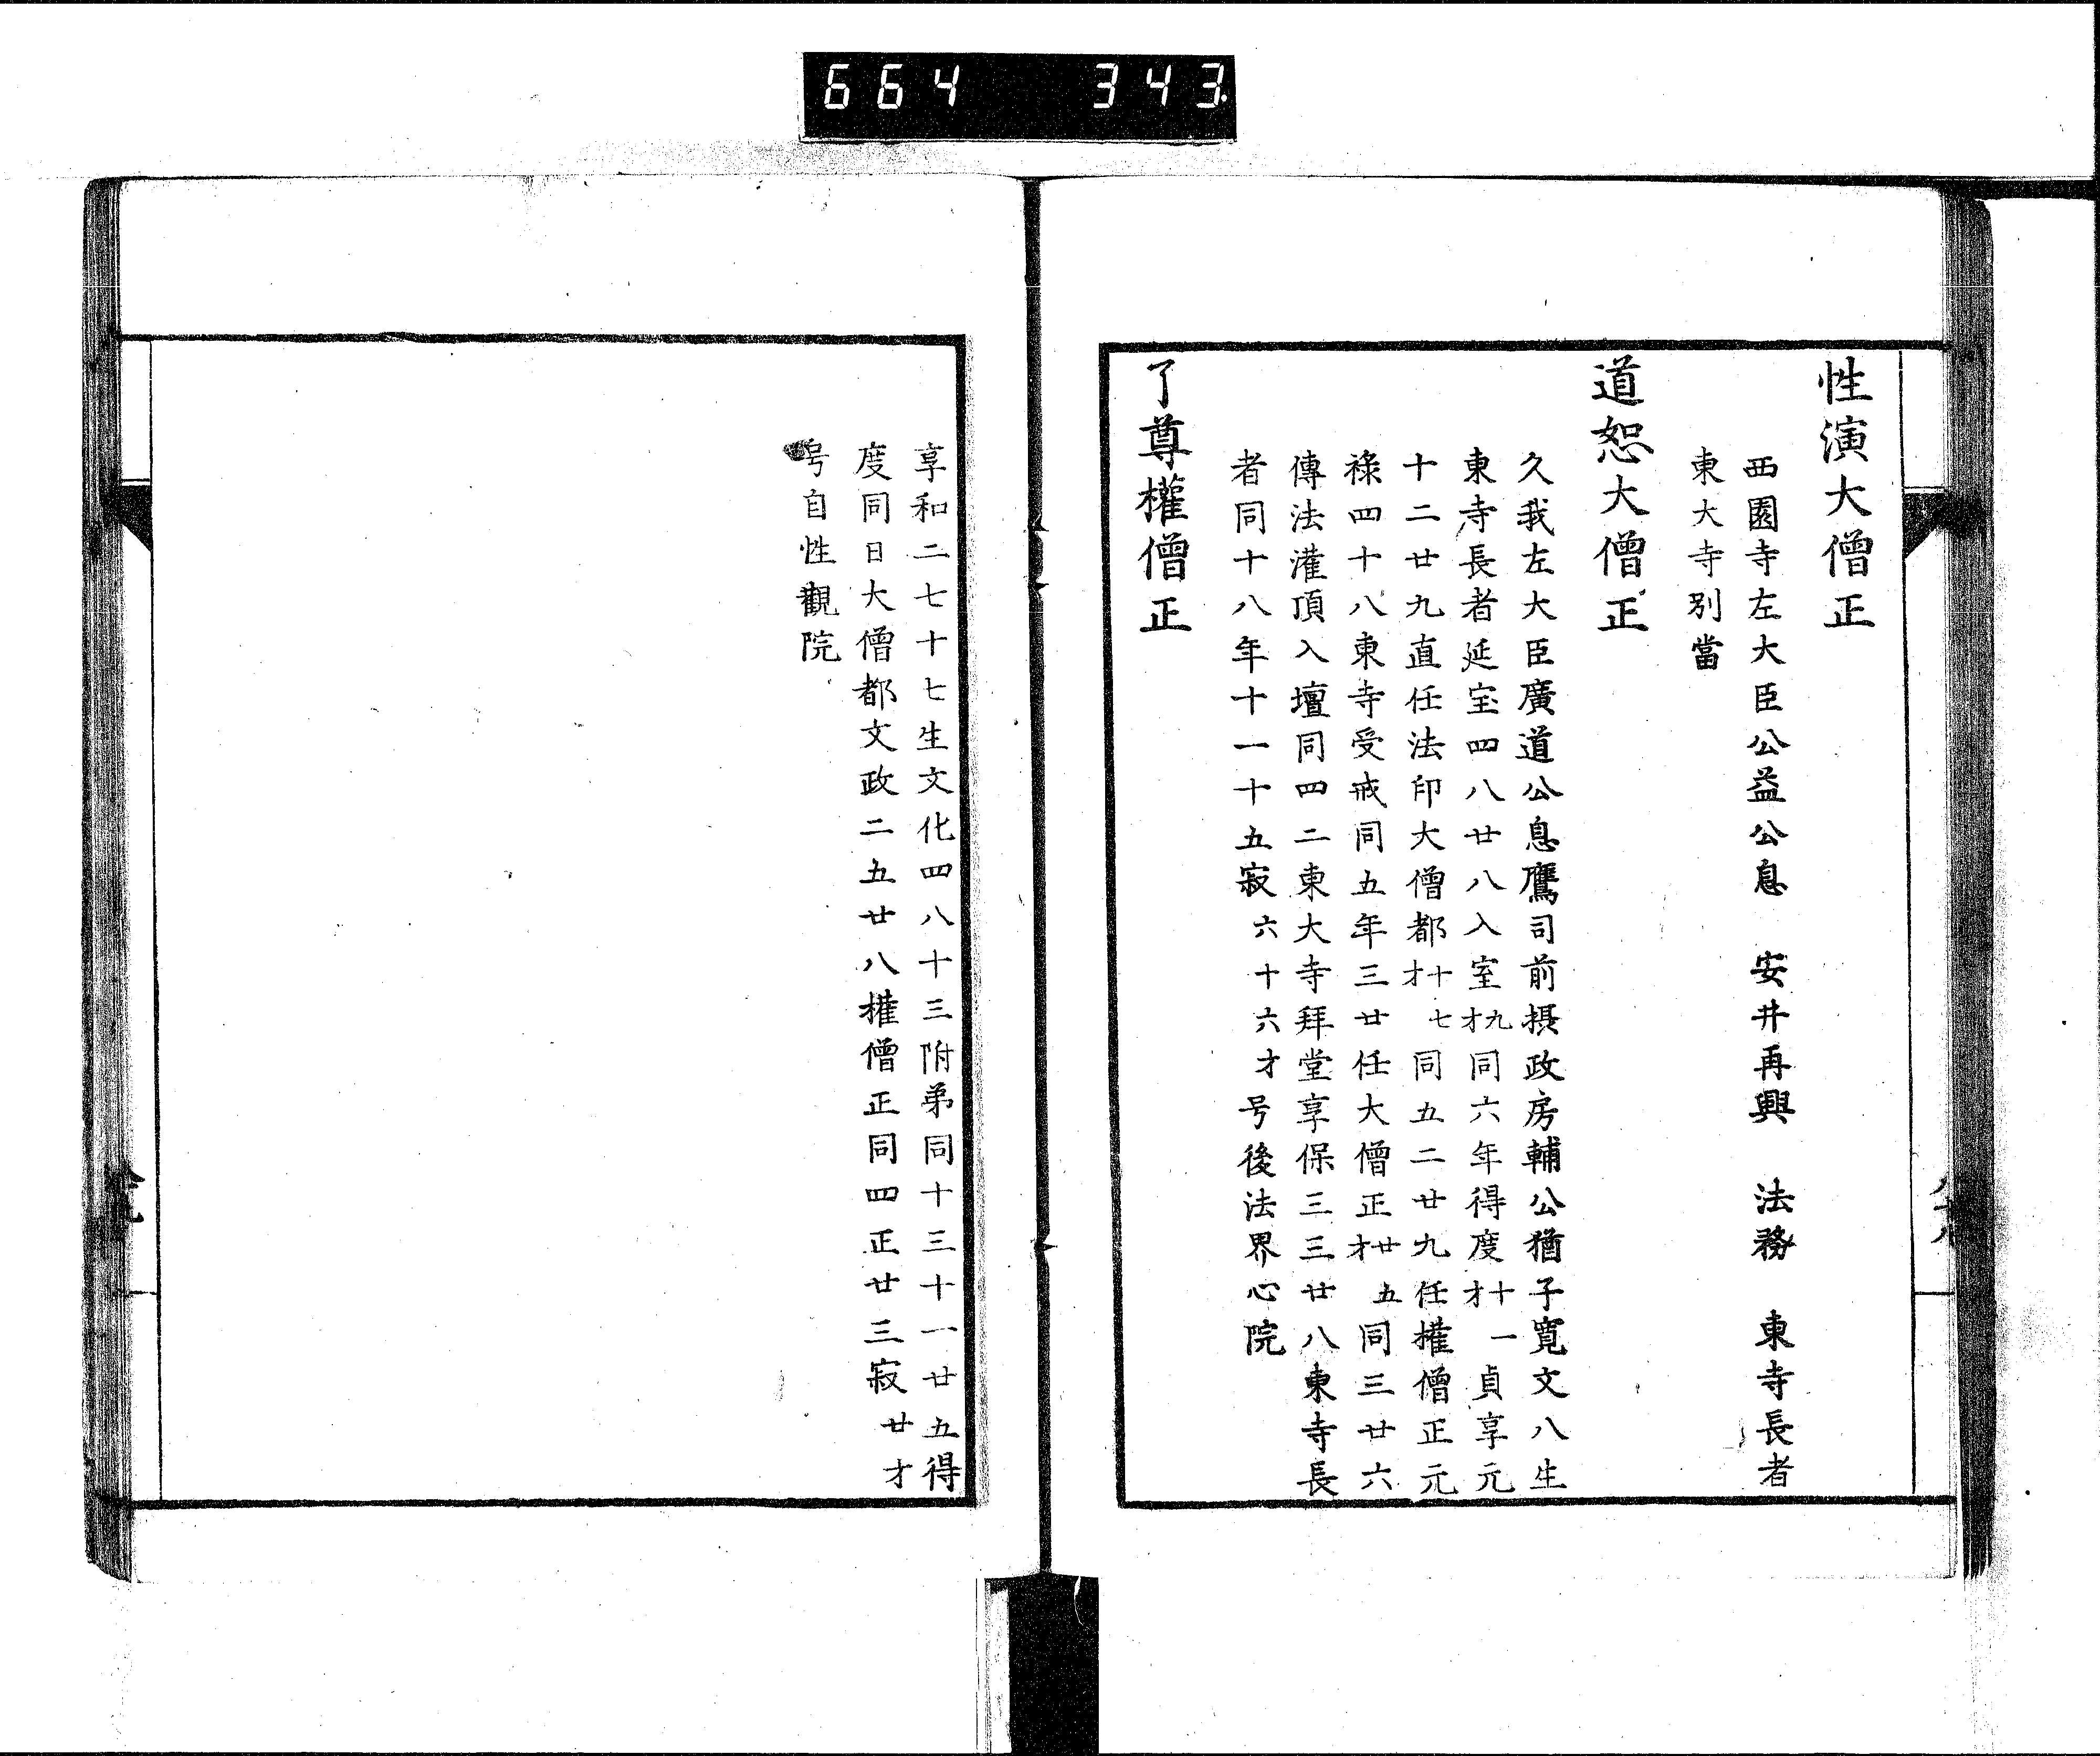 664 343.
性演大僧正
西園寺左大臣公益公息 安井再興 法務 東寺長者
東大寺別當
道恕大僧正
久我左大臣廣道公息鷹司前摂政房輔公猶子寛文八生
東寺長者延宝四八廿八入室九才同六年得度十一才貞享元
十二廿九直任法印大僧都十七才同五二廿九任權僧正元
祿四十八東寺受戒同五年三廿任大僧正廿五才同三廿六
傳法灌頂入壇同四二東大寺拜堂享保三三廿八東寺長
者同十八年十一十五寂六十六才号後法界心院
了尊權僧正
享和二七十七生文化四八十三附弟同十三十一廿五得
度同日大僧都文政二五廿八權僧正同四正廿三寂廿才
号自性觀院